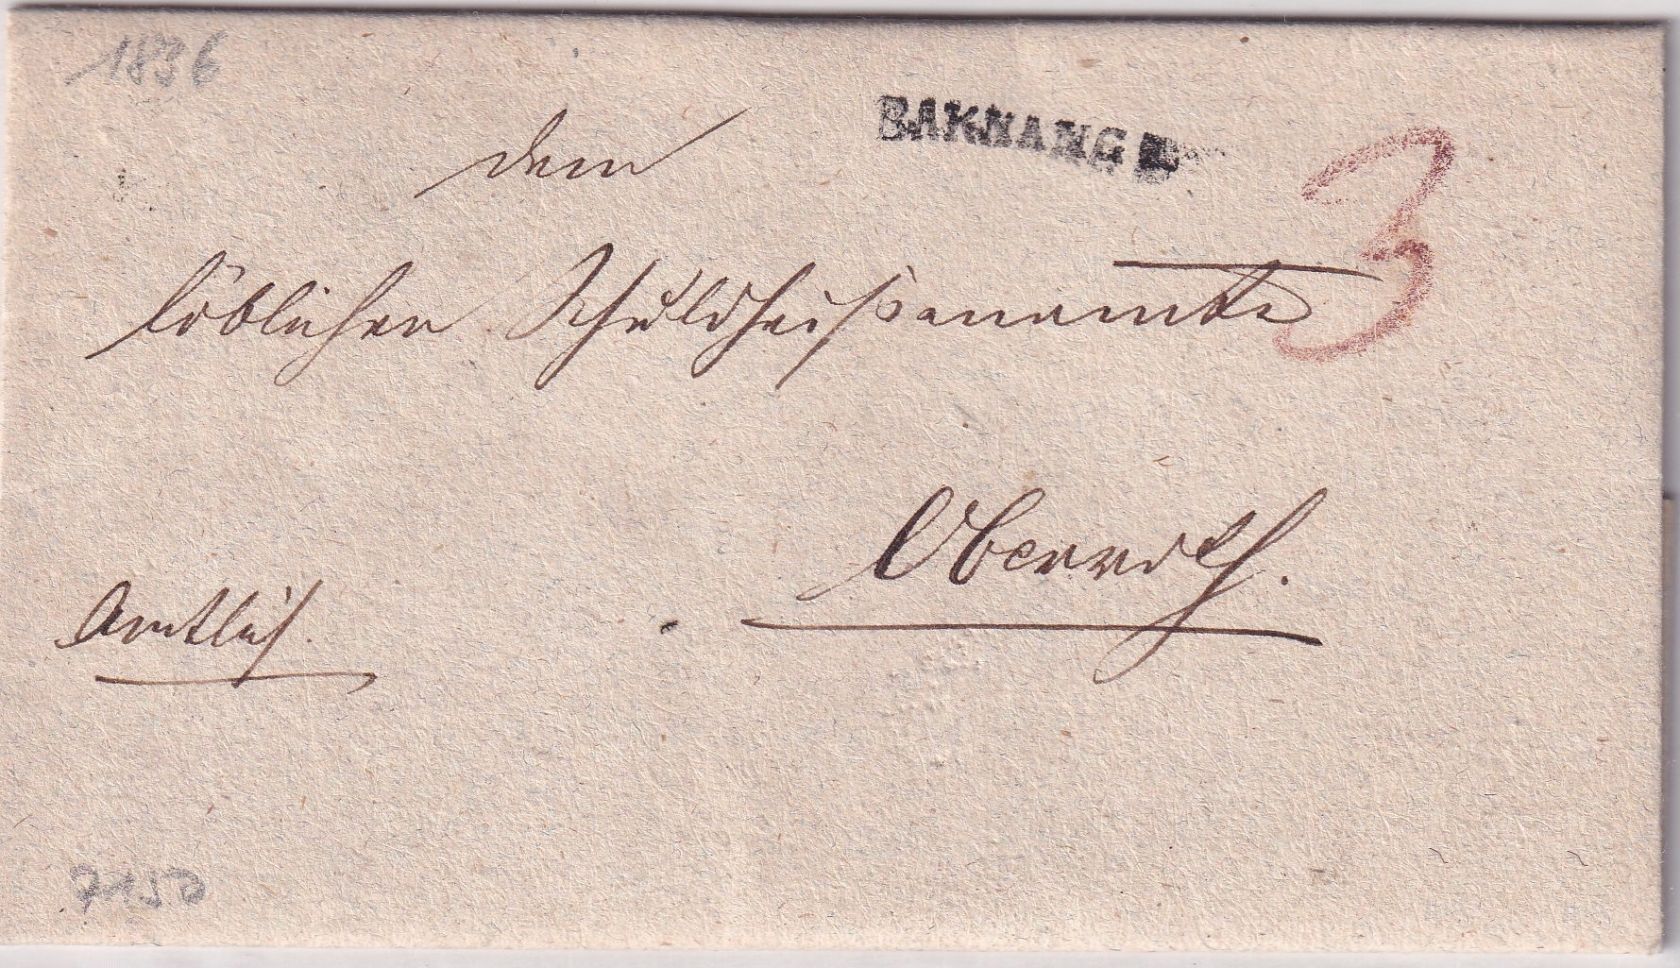 1836
BAKNANG
3
dem
löblichen Schuldheißenamte
Oberroth.
Amtlich.
7150